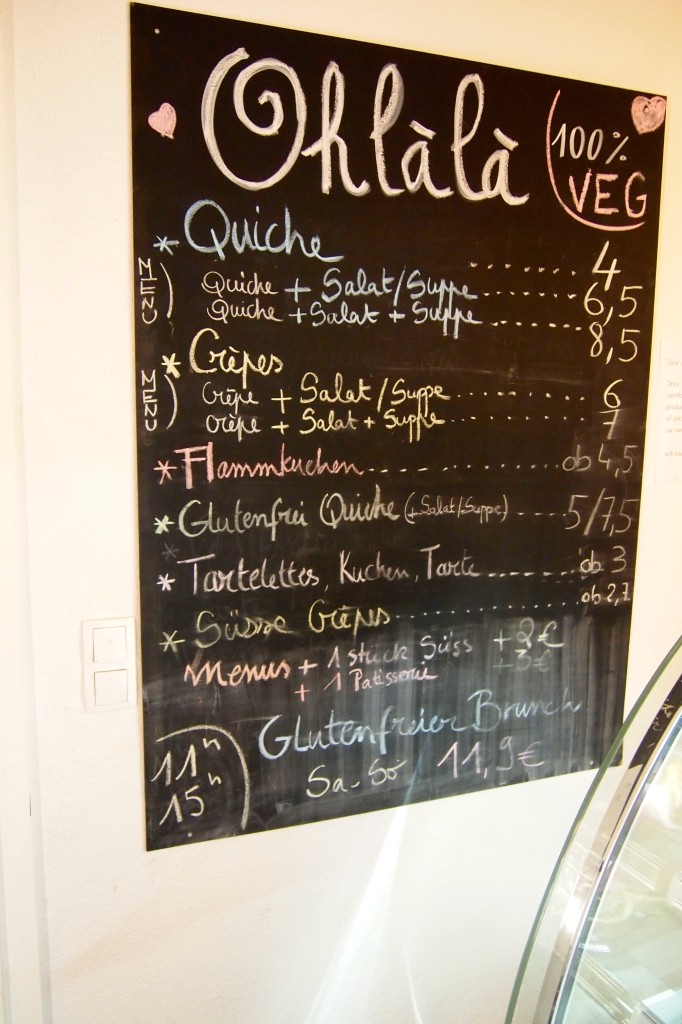 Ohlàlà
100%
VEG
* Quiche ........ 4
MENU
Quiche + Salat/Suppe ........ 6,5
Quiche + Salat + Suppe ........ 8,5
* Crêpes
MENU
Crêpe + Salat/Suppe ........ 6
Crêpe + Salat + Suppe ........ 7
* Flammkuchen ........ ab 4,5
* Glutenfrei Quiche (+Salat/Suppe) ........ 5/7,5
* Tartelettes, Kuchen, Tarte ........ ab 3
* Süsse Crêpes ........ ab 2,7
Menus + 1 stück Süss +2€
+ 1 Patisserie +3€
Glutenfreier Brunch
Sa-So 11,9€
11h
15h